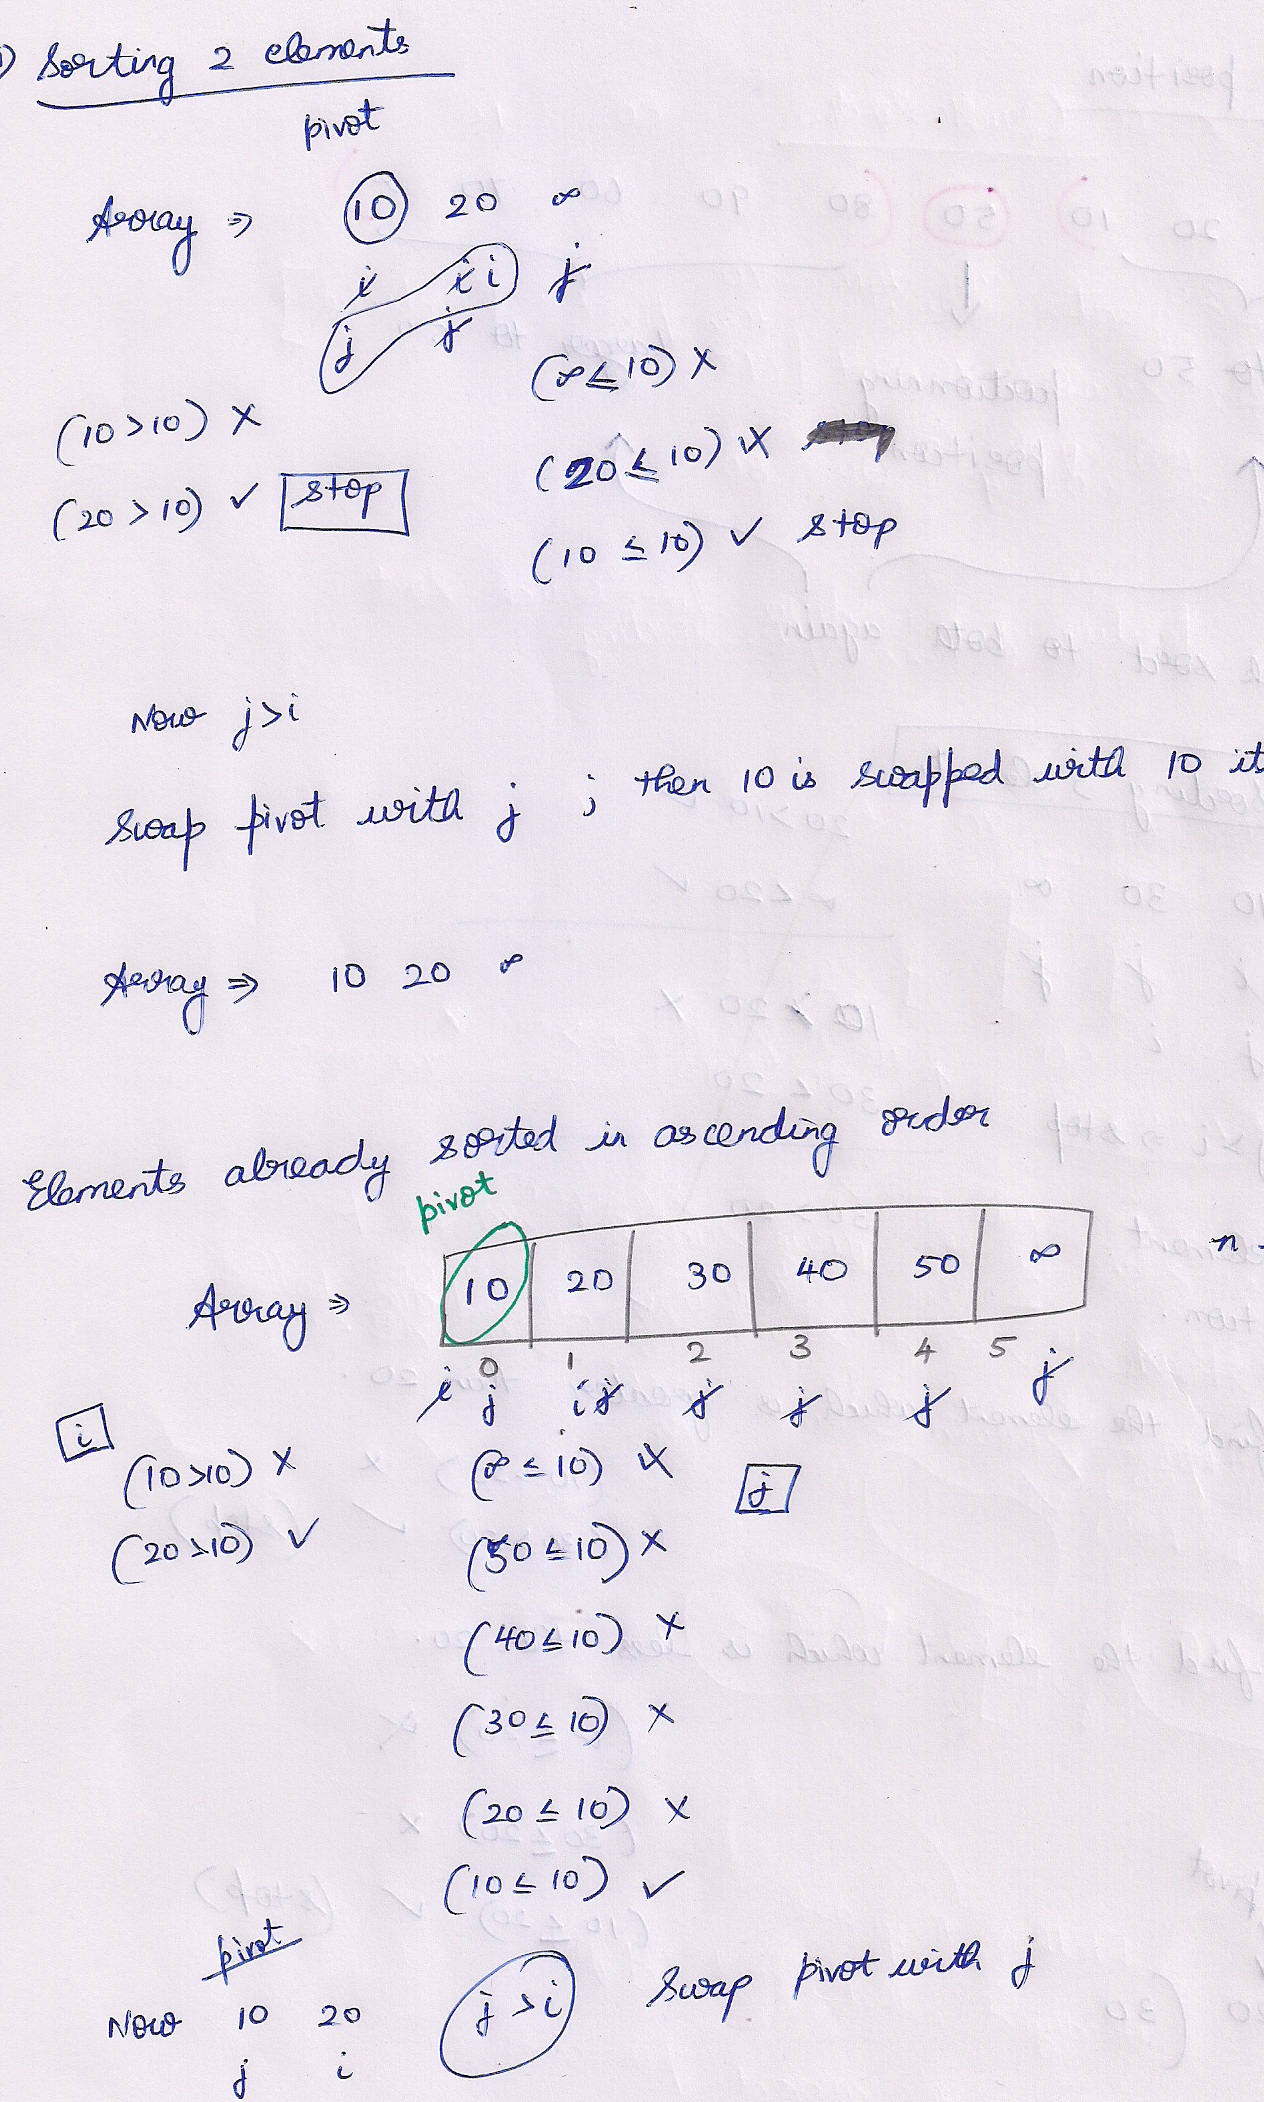 1) Sorting 2 elements
pivot
Array ⇒ 10 20 ∞
i i i j
j j
(∞ ≤ 10) ×
(10 > 10) ×
(20 ≤ 10) ×
(20 > 10) ✓ stop
(10 ≤ 10) ✓ stop
Now j > i
Swap pivot with j ; then 10 is swapped with 10 it
Array ⇒ 10 20 ∞
Elements already sorted in ascending order
pivot
Array ⇒ 10 20 30 40 50 ∞ n
0 1 2 3 4 5
i j i j j j j j
i
(10 > 10) × (∞ ≤ 10) × j
(20 > 10) ✓ (50 ≤ 10) ×
(40 ≤ 10) ×
(30 ≤ 10) ×
(20 ≤ 10) ×
(10 ≤ 10) ✓
pivot
Now 10 20 j > i Swap pivot with j
j i